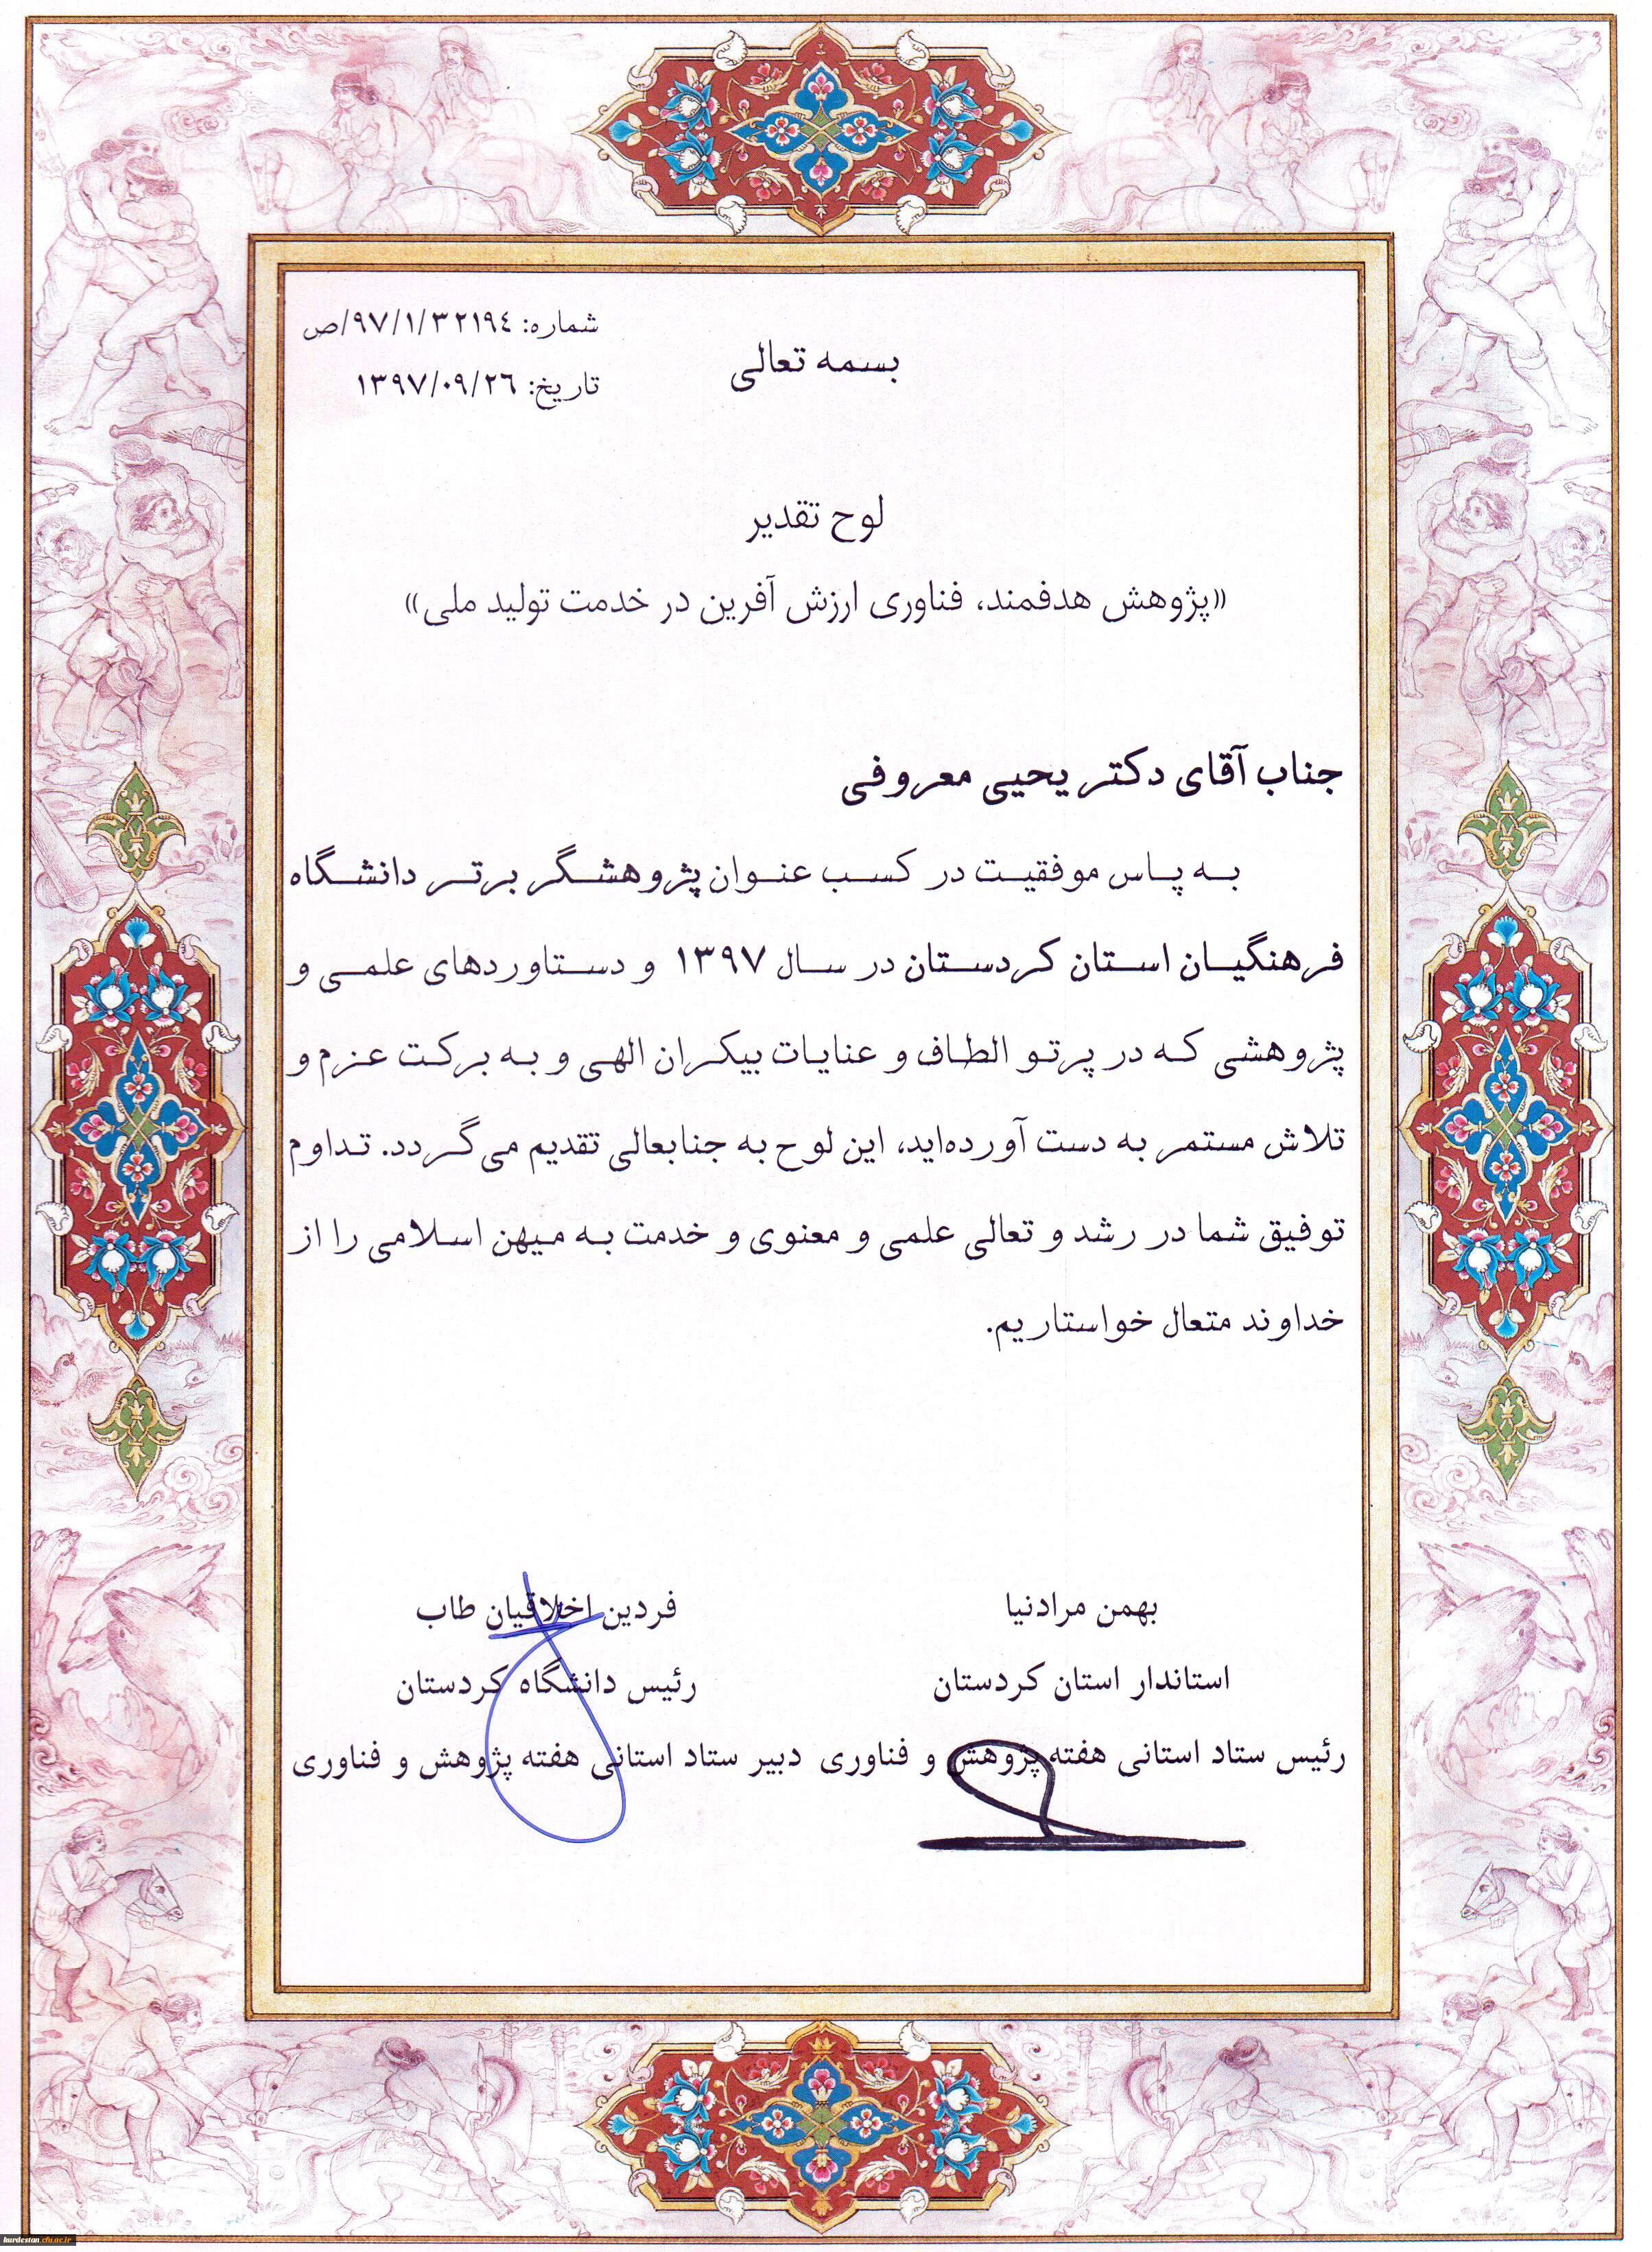 بسمه تعالی
شماره: ۹۷/۱/۳۲۱۹٤/ص
تاریخ: ۱۳۹۷/۰۹/۲٦
لوح تقدیر
«پژوهش هدفمند، فناوری ارزش آفرین در خدمت تولید ملی»
جناب آقای دکتر یحیی معروفی
به پاس موفقیت در کسب عنوان پژوهشگر برتر دانشگاه
فرهنگیان استان کردستان در سال ۱۳۹۷ و دستاوردهای علمی و
پژوهشی که در پرتو الطاف و عنایات بیکران الهی و به برکت عزم و
تلاش مستمر به دست آورده‌اید، این لوح به جنابعالی تقدیم می‌گردد. تداوم
توفیق شما در رشد و تعالی علمی و معنوی و خدمت به میهن اسلامی را از
خداوند متعال خواستاریم.
بهمن مرادنیا
استاندار استان کردستان
رئیس ستاد استانی هفته پژوهش و فناوری
فردین اخلاقیان طاب
رئیس دانشگاه کردستان
دبیر ستاد استانی هفته پژوهش و فناوری
kurdestan.cfu.ac.ir